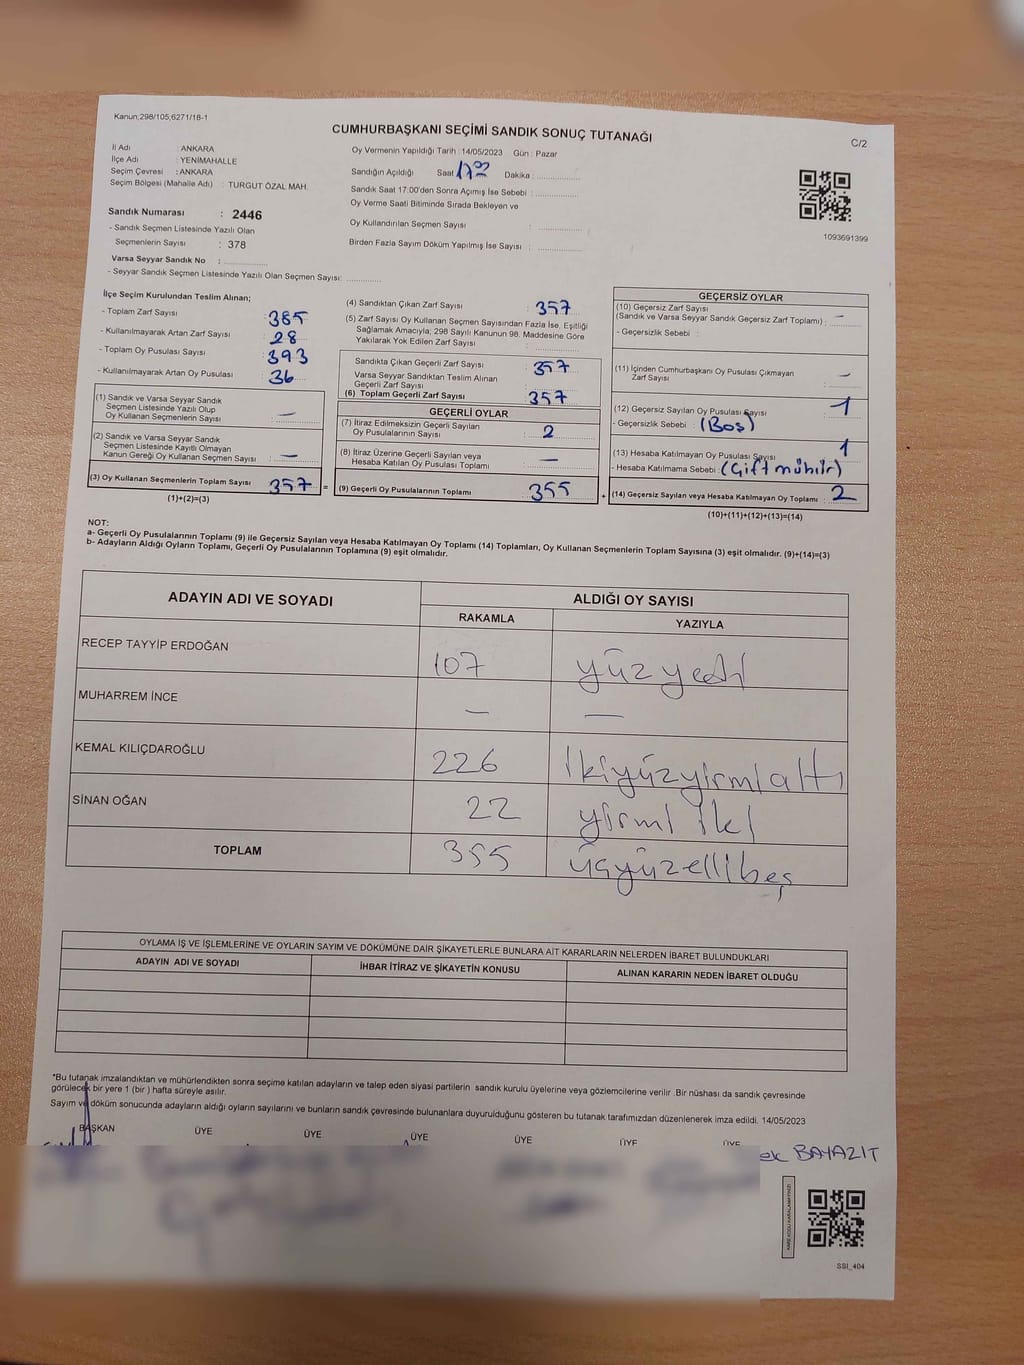 Kanun;298/105,6271/18-1
CUMHURBAŞKANI SEÇİMİ SANDIK SONUÇ TUTANAĞI
C/2
İl Adı : ANKARA
İlçe Adı : YENİMAHALLE
Seçim Çevresi : ANKARA
Seçim Bölgesi (Mahalle Adı) : TURGUT ÖZAL MAH.
Sandık Numarası : 2446
- Sandık Seçmen Listesinde Yazılı Olan
Seçmenlerin Sayısı : 378
Varsa Seyyar Sandık No :
- Seyyar Sandık Seçmen Listesinde Yazılı Olan Seçmen Sayısı:
Oy Vermenin Yapıldığı Tarih : 14/05/2023 Gün : Pazar
Sandığın Açıldığı Saat 17:00 Dakika :
Sandık Saat 17:00'den Sonra Açmış İse Sebebi :
Oy Verme Saati Bitiminde Sırada Bekleyen ve
Oy Kullandırılan Seçmen Sayısı :
Birden Fazla Sayım Döküm Yapılmış İse Sayısı :
1093691399
İlçe Seçim Kurulundan Teslim Alınan;
- Toplam Zarf Sayısı : 385
- Kullanılmayarak Artan Zarf Sayısı : 28
- Toplam Oy Pusulası Sayısı : 393
- Kullanılmayarak Artan Oy Pusulası : 36
(1) Sandık ve Varsa Seyyar Sandık
Seçmen Listesinde Yazılı Olup
Oy Kullanan Seçmenlerin Sayısı : —
(2) Sandık ve Varsa Seyyar Sandık
Seçmen Listesinde Kayıtlı Olmayan
Kanun Gereği Oy Kullanan Seçmen Sayısı : —
(3) Oy Kullanan Seçmenlerin Toplam Sayısı : 357 =
(1)+(2)=(3)
(4) Sandıktan Çıkan Zarf Sayısı : 357
(5) Zarf Sayısı Oy Kullanan Seçmen Sayısından Fazla İse, Eşitliği
Sağlamak Amacıyla; 298 Sayılı Kanunun 98. Maddesine Göre
Yakılarak Yok Edilen Zarf Sayısı :
Sandıkta Çıkan Geçerli Zarf Sayısı : 357
Varsa Seyyar Sandıktan Teslim Alınan
Geçerli Zarf Sayısı :
(6) Toplam Geçerli Zarf Sayısı : 357
GEÇERLİ OYLAR
(7) İtiraz Edilmeksizin Geçerli Sayılan
Oy Pusulasının Sayısı : 2
(8) İtiraz Üzerine Geçerli Sayılan veya
Hesaba Katılan Oy Pusulası Toplamı : —
(9) Geçerli Oy Pusulalarının Toplamı : 355 +
GEÇERSİZ OYLAR
(10) Geçersiz Zarf Sayısı
(Sandık ve Varsa Seyyar Sandık Geçersiz Zarf Toplamı) : —
- Geçersizlik Sebebi :
(11) İçinden Cumhurbaşkanı Oy Pusulası Çıkmayan
Zarf Sayısı : —
(12) Geçersiz Sayılan Oy Pusulası Sayısı : 1
- Geçersizlik Sebebi : (Boş)
(13) Hesaba Katılmayan Oy Pusulası Sayısı : 1
- Hesaba Katılmama Sebebi : (Çift mühür)
(14) Geçersiz Sayılan veya Hesaba Katılmayan Oy Toplamı : 2
(10)+(11)+(12)+(13)=(14)
NOT:
a- Geçerli Oy Pusulalarının Toplamı (9) ile Geçersiz Sayılan veya Hesaba Katılmayan Oy Toplamı (14) Toplamları, Oy Kullanan Seçmenlerin Toplam Sayısına (3) eşit olmalıdır. (9)+(14)=(3)
b- Adayların Aldığı Oyların Toplamı, Geçerli Oy Pusulalarının Toplamına (9) eşit olmalıdır.
ADAYIN ADI VE SOYADI ALDIĞI OY SAYISI
RAKAMLA YAZIYLA
RECEP TAYYİP ERDOĞAN 107 yüz yedi
MUHARREM İNCE — —
KEMAL KILIÇDAROĞLU 226 ikiyüzyirmialtı
SİNAN OĞAN 22 yirmi iki
TOPLAM 355 üçyüzellibeş
OYLAMA İŞ VE İŞLEMLERİNE VE OYLARIN SAYIM VE DÖKÜMÜNE DAİR ŞİKAYETLERLE BUNLARA AİT KARARLARIN NELERDEN İBARET BULUNDUKLARI
ADAYIN ADI VE SOYADI İHBAR İTİRAZ VE ŞİKAYETİN KONUSU ALINAN KARARIN NEDEN İBARET OLDUĞU
*Bu tutanak imzalandıktan ve mühürlendikten sonra seçime katılan adayların ve talep eden siyasi partilerin sandık kurulu üyelerine veya gözlemcilerine verilir .Bir nüshası da sandık çevresinde
görülecek bir yere 1 (bir ) hafta süreyle asılır.
Sayım ve döküm sonucunda adayların aldığı oyların sayılarını ve bunların sandık çevresinde bulunanlara duyurulduğunu gösteren bu tutanak tarafımızdan düzenlenerek imza edildi. 14/05/2023
BAŞKAN ÜYE ÜYE ÜYE ÜYE ÜYE ÜYE
BAYAZIT
SSI_404